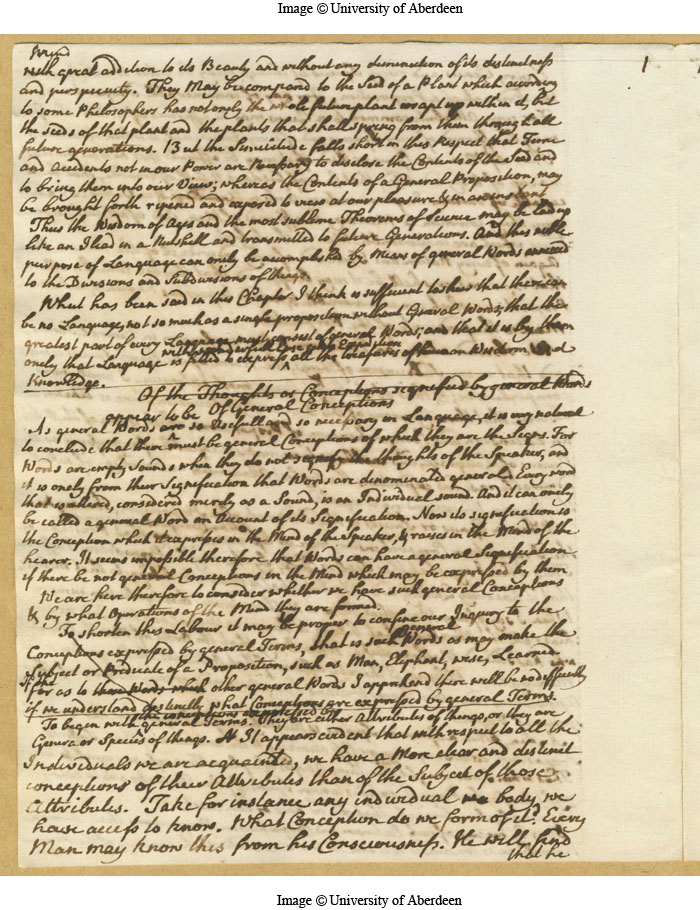 Image © University of Aberdeen
1
Mind
with great addition to its Beauty and without any diminution of its distinctness
and perspicuity. They May be compared to the Seed of a Plant which according
to some Philosophers has not onely the whole future plant wrapt up within it, but
the Seeds of that plant and the plants that shall spring from them through all
future generations. But the Similitude falls short in this Respect that Time
and Accidents not in our Power are Necessary to disclose the Contents of the Seed and
to bring them into our View; whereas the Contents of a General Proposition, may
be brought forth ripened and exposed to view at our pleasure & in an instant
Thus the Wisdom of Ages and the most sublime Theorems of Science may be laid up
like an Iliad in a Nutshell and transmitted to future Generations. And this noble
purpose of Language can onely be accomplished by Means of general Words annexed
to the Divisions and Subdivisions of things
What has been said in this Chapter I think is sufficient to shew that there can
be no Language, not so much as a single proposition without General Words; that the
greatest part of every Language must consist of general Words; and that it is by them
onely that Language is fitted to express all the treasures of human Wisdom and
Knowledge.
Of the Thoughts or Conceptions signified by general Words
appear to be Of General Conceptions
As general Words are so usefull and so necessary in Language, it is very natural
to conclude that there must be general Conceptions of which they are the Signs. For
Words are empty Sounds when they do not signify the thoughts of the Speaker, and
it is onely from their Signification that Words are denominated general. Every word
that is uttered, considered merely as a Sound, is an Individual sound. And it can onely
be called a general Word on Account of its Signification. Now its signification is
the Conception which it expresses in the Mind of the Speaker, & raises in the Mind of the
hearer. It seems impossible therefore that Words can have a general Signification
if there be not general Conceptions in the Mind which may be expressed by them
We are here therefore to consider whether we have such general Conceptions
& by what Operations of the Mind they are formed.
To shorten this Labour it may be proper to confine our Inquiry to the
general
Conceptions expressed by general Terms, that is such Words as may make the
Subject or Predicate of a Proposition, such as Man, Elephant, wise, Learned
For as to those Words which other general Words I apprehend there will be no difficulty
if we understand distinctly what Conceptions are expressed by general Terms.
the conceptions expressed by
To begin with general Terms. They are either Attributes of things, or they are
Genera or Species of things. It appears evident that with respect to all the
Individuals we are acquainted, we have a More clear and distinct
conceptions of their Attributes than of the Subject of those
Attributes. Take for instance any individual body we
have access to know. What Conception do we form of it? Every
Man may know this from his Consciousness. He will find
that he
Image © University of Aberdeen